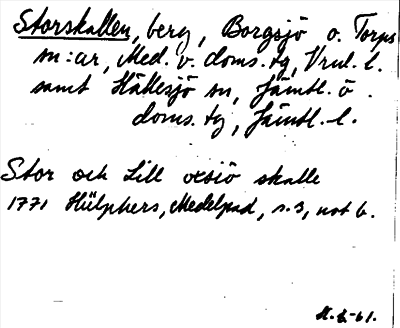 Storskallen, berg, Borgsjö o. Torps
sn:ar, Med. v. doms.tg, Vnl. l.
samt Hällesjö sn, Jämtl. ö.
doms.tg, Jämtl. l.
Stor och Lill oxsiö skalle
1771 Hülphers, Medelpad, s. 3, not b.